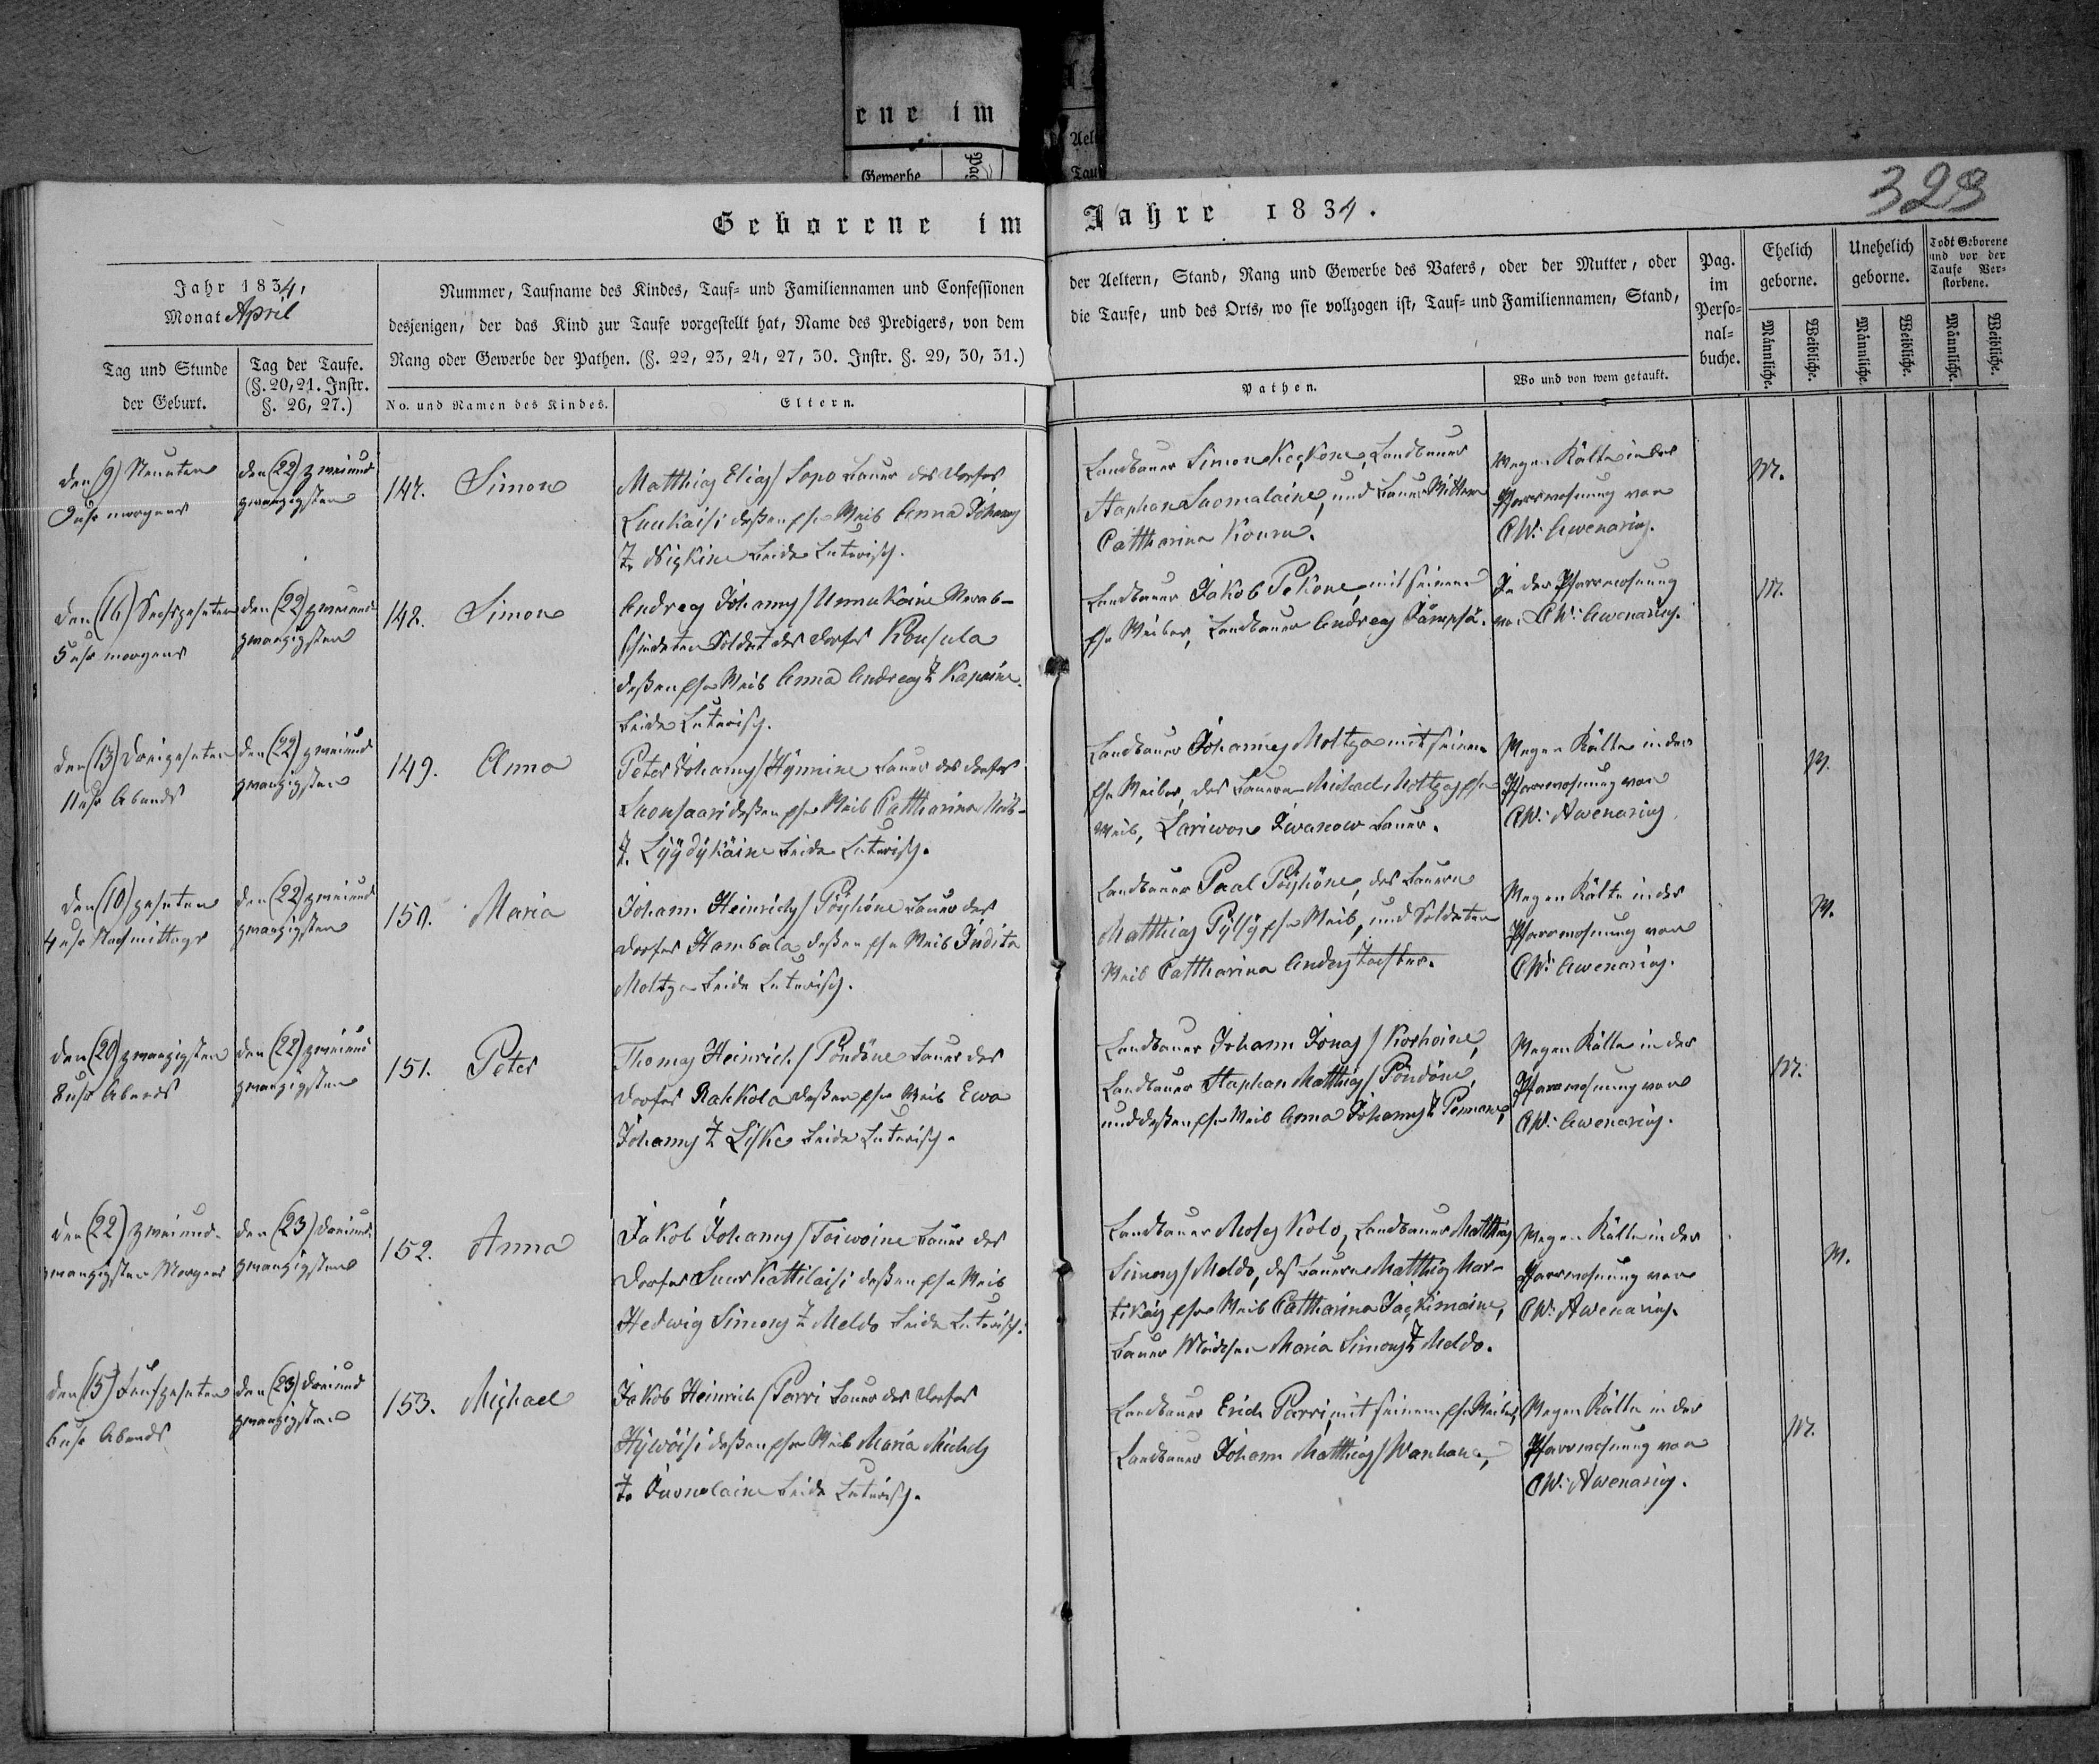 ene im
Gewerbe
Ael
Tau
323
Geborene im Jahre 1834.
Jahr 1834,
Monat April
Tag und Stunde
der Geburt.
Tag der Taufe.
(§. 20, 21. Instr.
§. 26, 27.)
Nummer, Taufname des Kindes, Tauf= und Familiennamen und Confessionen
desjenigen, der das Kind zur Taufe vorgestellt hat, Name des Predigers, von dem
Rang oder Gewerbe der Pathen. (§. 22, 23, 24, 27, 30. Instr. §. 29, 30, 31.)
No. und Namen des Kindes.
Eltern.
der Aeltern, Stand, Rang und Gewerbe des Vaters, oder der Mutter, oder
die Taufe, und des Orts, wo sie vollzogen ist, Tauf= und Familiennamen, Stand,
Pathen.
Wo und von wem getauft.
Pag.
im
Perso=
nal=
buche.
Ehelich
geborne.
Unehelich
geborne.
Todt Geborene
und vor der
Taufe Ver=
storbene.
Männliche.
Weibliche.
Männliche.
Weibliche.
Männliche.
Weibliche.
den (9) Neunten
9 uhr morgens
den (22) zweiund
zwanzigsten
147. Simon
Matthias Elias/ Sopo Bauer des Dorfes
Luukaisi deßen ehe Weib Anna Johans
T. Nigkine beide Luterisch.
Landbauer Simon Kegköne, Landbauer
Staphan Suomalaine, und Bauer Wittwe
Cattharina Koura.
Wegen Kälte in der
Pfarrwohnung von
CW: Awenarius.
M.
den (16) Sechszehnten
5 uhr morgens
den (22) zweiund
zwanzigsten
148. Simon
Andreas Johans/ Unnukaine Verab-
schiedeter Soldat des Dorfes Konsula
deßen ehe Weib Anna Andreas T. Kapaine
beide Luterisch.
Landbauer Jakob Pekone, mit seinem
ehe Weibe, Landbauer Andreas Jämpsä.
In der Pfarrwohnung
von CW: Awenarius.
M.
den (13) Dreizehnten
11 uhr Abends
den (22) zweiund
zwanzigsten
149. Anna
Peter Johans/ Hÿnnine Bauer des Dorfes
Suonsaari deßen ehe Weib Cattharina
T. Lÿÿdÿkäine beide Luterisch.
Landbauer Johannes Moltza mit seinem
ehe Weibe, des Bauern Michael Moltzas ehe
Weib, Lariwon Iwanow Bauer.
Wegen Kälte in der
Pfarrwohnung von
CW: Awenarius.
M.
den (10) zehnten
4 uhr Nachmittags
den (22) zweiund
zwanzigsten
150. Maria
Johann Heinrichs/ Pöÿhöne Bauer des
Dorfes Hambala deßen ehe Weib Judita
Moltza beide Luterisch.
Landbauer Paal Pöÿhöne, des Bauern
Matthias Pÿlsÿ ehe Weib, und Soldaten
Weib Cattharina Anders Tochter.
Wegen Kälte in der
Pfarrwohnung von
CW: Awenarius.
M.
den (20) zwanzigsten
8 uhr Abends
den (22) zweiund
zwanzigsten
151. Peter
Thomas Heinrich/ Pöndöne Bauer des
Dorfes Rahkola deßen ehe Weib Ewa
Johans T. Liske beide Luterisch.
Landbauer Johann Jonas/ Korhoine,
Landbauer Staphan Matthias/ Pöndöne,
und deßen ehe Weib Anna Johans T. Pennane,
Wegen Kälte in der
Pfarrwohnung von
CW: Awenarius.
M.
den (22) zweiund-
zwanzigsten Morgens
den (23) dreiund
zwanzigsten
152. Anna
Jakob Johans/ Toiwoine Bauer des
Dorfes Suur Kattilaisi deßen ehe Weib
Hedwig Simons T. Meldo beide Luterisch.
Landbauer Moses Kolo, Landbauer Matthias
Simons/ Meldo, des Bauern Matthias Mar-
tikas ehe Weib Cattharina Jaeskimaine,
Bauer Mädchen Maria Simons T. Meldo.
Wegen Kälte in der
Pfarrwohnung von
CW: Awenarius.
M.
den (15) Funfzehnten
6 uhr Abends
den (23) dreiund
zwanzigsten
153. Mighael
Jakob Heinrich/ Parri Bauer des Dorfes
Hÿwöisi deßen ehe Weib Maria Michels
T. Suomelaine beide Luterisch.
Landbauer Erich Parri, mit seinem ehe Weibe,
Landbauer Johann Matthias/ Wanhane,
Wegen Kälte in der
Pfarrwohnung von
CW: Awenarius.
M.